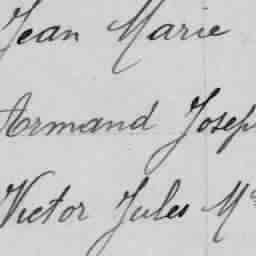 Jean Marie
Armand Josep
Victor Jules M